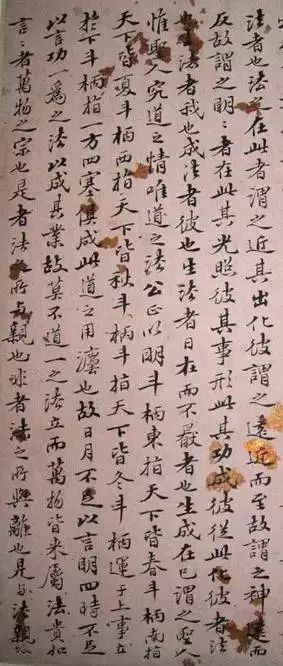 法者也法之在此者謂之近其出化彼謂之遠近而至故謂之神遠而
反故謂之明〻者在此其光照彼其事形此其功成彼從此化彼者法
也生法者我也成法者彼也生法者日在而不厭者也生成在己謂之聖人
惟聖人究道之情唯道之法公正以明斗柄東指天下皆春斗柄南指
天下皆夏斗柄西指天下皆秋斗柄北指天下皆冬斗柄運于上事立
於下斗柄指一方四塞俱成此道之用灋也故日月不足以言明四時不足
以言功一為之法以成其業故莫不道一之法立而萬物皆來屬法貴如
言〻者萬物之宗也是者法之所与親也非者法之所與離也是与法親故